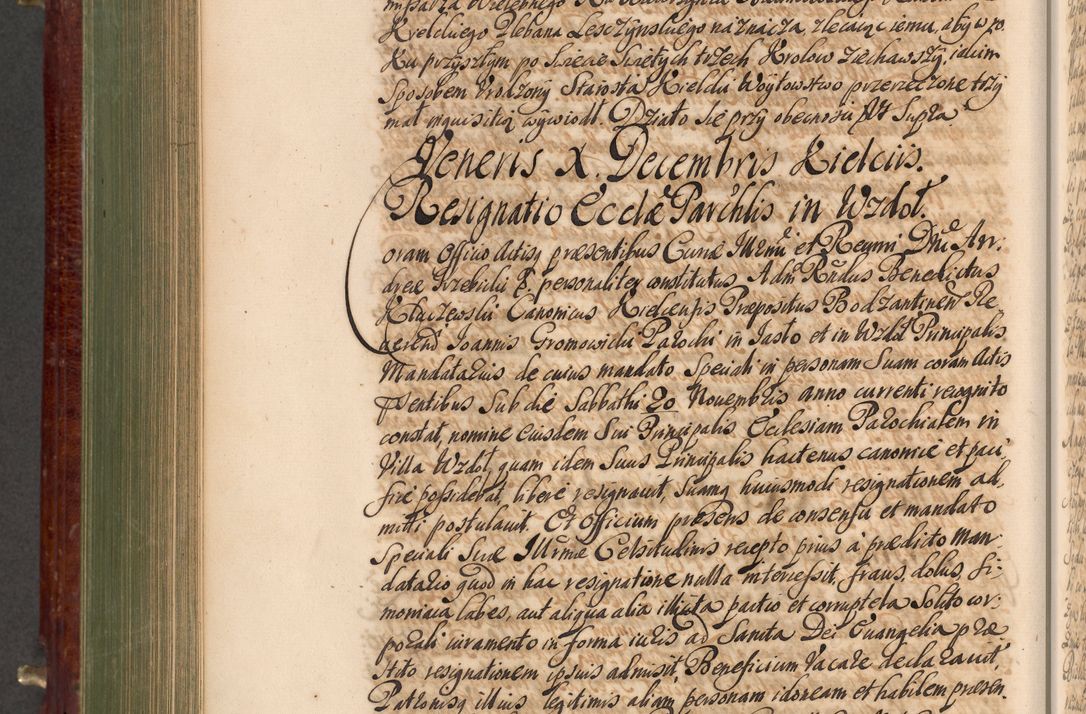 Kielckiego Plebana Lesczynskiego naznacza, zlecaiąc iemu, aby w ro
Ku przyszłym po Swięcie Swiętych trzech Krolow ziechawszy, iakim
sposobem Urodzony Starosta Kielcki Woytowstwo przerzeczone trzy
mał inquisitią wywiodł. Działo sie przy obecnosci Ut Supra
Veneris X. Decembris Kielciis.
Resignatio Ecclæ Parchlis in Wzdoł.
oram Officio Actisq præsentibus Curiæ Illrmi et Reumi Dni An,
dreæ Trzebicki E. personaliter constitutus Adm Rndus Benedictus
Kłaczewski Canonicus Kielcensis Præpositus Bodzantinen Re
verend Joannis Gromowicki Parochi in Jasto et in Wzdoł Principalis
Mandatarius de cuius mandato Speciali in personam Suam coram Actis
psentibus Sub die Sabbathi 20 Novembris anno currenti recognito
constat, nomine eiusdem Sui Principalis Ecclesiam Parochialem in
Villa Wzdoł, quam idem Suus Principalis hactenus canonice et paci,
fice possidebat, libere resignavit, Suamq huiusmodi resignationem ad,
mitti postulavit. Et Officium præsens de consensu et mandato
Speciali Suæ Illrmæ Celsitudinis recepto prius à prædicto Man
datario quod in hac resignatione nulla intercessit, fraus, dolus, Si,
moniaca labes, aut aliqua alia illicita pactio et corruptela Solito cor,
porali iuramento in forma iuris ad Sancta Dei Evangelia præ
stito resignationem ipsius admisit, Beneficium Vacare declaravit,
Patronisq illius legitimis aliam personam idoneam et habilem præsen,